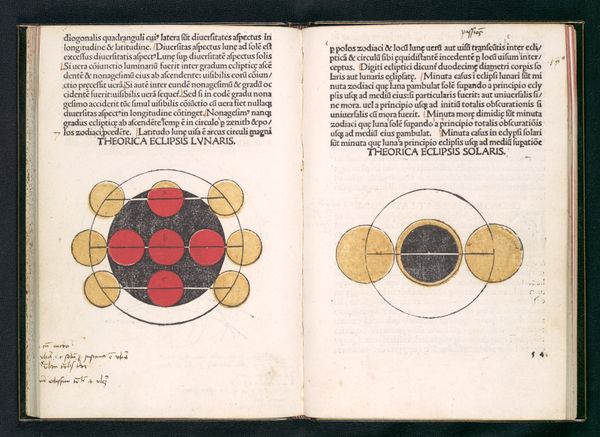 diogonalis quadranguli cuiꝰ latera sūt diuersitates aspectus in
longitudine & latitudine. Diuersitas aspectus lunę ad solē est
excessus diuersitatis aspectꝰ Lunę sup diuersitatē aspectus solis
Si uera cōiunctio luminariū fuerit inter gradum eclipticę ascē
dentē & nonagesimū eius ab ascendente: uisibilis eorū cōiun/
ctio pręcessit uerā. Si aūt inter eundē nonagesimū & gradū oc
cidentē fuerit: uisibilis uerā sequeť. Sed si in eodē gradu nona
gesimo acciderit tūc simul uisibilis cōiūctio cū uera fiet nullaqꝫ
diuersitas aspectꝰ in longitudine cōtinget. Nonagesimꝰ nanqꝫ
gradus eclipticę ab ascendēte semp ē in circulo p zenith & po/
los zodiaci pcedēte. Latitudo lunę uisa ē arcus circuli magni
THEORICA ECLIPSIS LVNARIS.
p polos zodiaci & locū lunę uerū aut uisū transeūtis inter ecli/
pticā & circulū sibi equidistantē incedentē p locū uisum inter/
ceptus. Digiti ecliptici dicunť duodecimę diametri corpis so
laris aut lunaris eclipsatę. Minuta casus i eclipsi lunari sūt mi
nuta zodiaci quę luna pambulat solē supando a principio ecly
psis usqꝫ ad mediū eius: si particularis fuerit: aut uniuersalis si/
ne mora. uel a principio usqꝫ ad initiū totalis obscurationis si
uniuersalis cū mora fuerit. Minuta morę dimidię sūt minuta
zodiaci quę luna solē supando a principio totalis obscuratiōis
usqꝫ ad mediū eius pambulat. Minuta casus in eclypsi solari
sūt minuta quę luna a principio eclipsis usqꝫ ad mediū supatiōe
THEORICA ECLIPSIS SOLARIS.